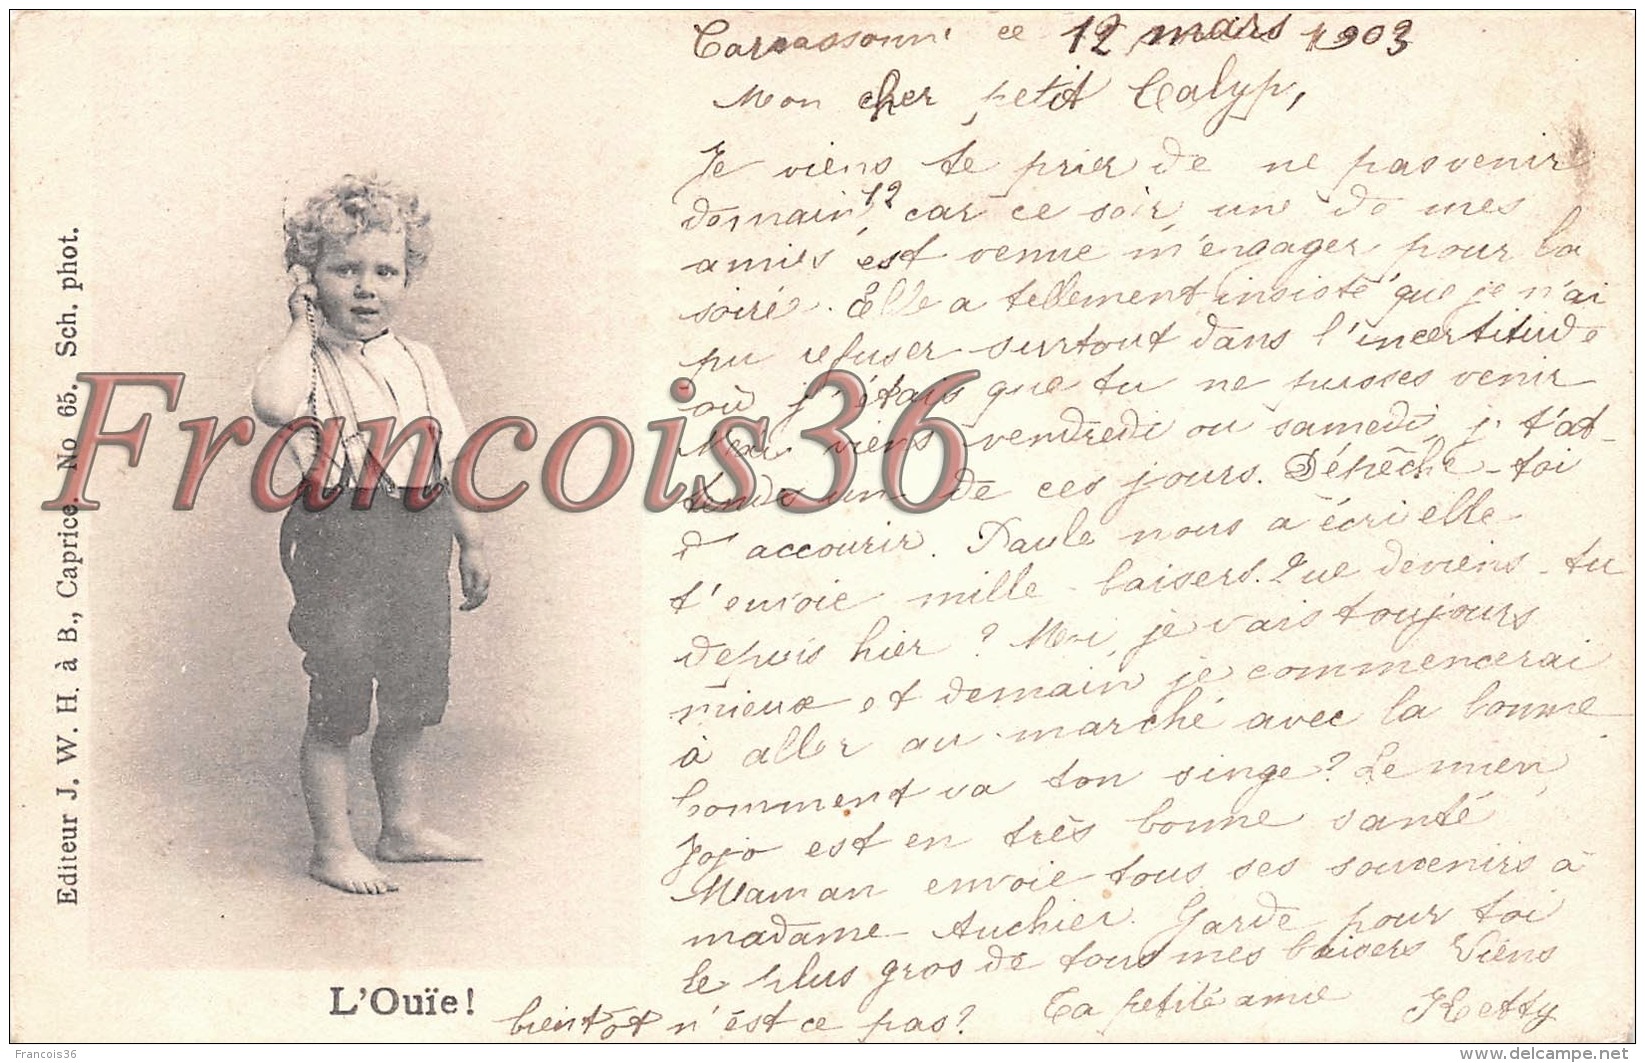 Carcassonne ce 12 mars 1903
Mon cher petit Calyp,
Je viens te prier de ne pas venir
demain 12, car ce soir une de mes
amies est venue m'engager pour la
soirée. Elle a tellement insisté que je n'ai
pu refuser surtout dans l'incertitude
où j'étais que tu ne puisses venir
Mai viens vendredi ou samedi, je t'at-
tendrai un de ces jours. Dépêche-toi
d'accourir. Paule nous a écri elle
t'envoie mille baisers. Que deviens-tu
depuis hier? Moi, je vais toujours
mieux et demain je commencerai
à aller au marché avec la bonne
Comment va ton singe? Le mien,
Jojo est en très bonne santé
Maman envoie tous ses souvenirs à
madame Auchier. Garde pour toi
le plus gros de tous mes baisers Viens
bientôt n'est ce pas? Ta petite amie Ketty
Editeur J. W. H. à B., Caprice. No 65. Sch. phot.
L'Ouïe!
Francois36
Francois36
www.delcampe.net